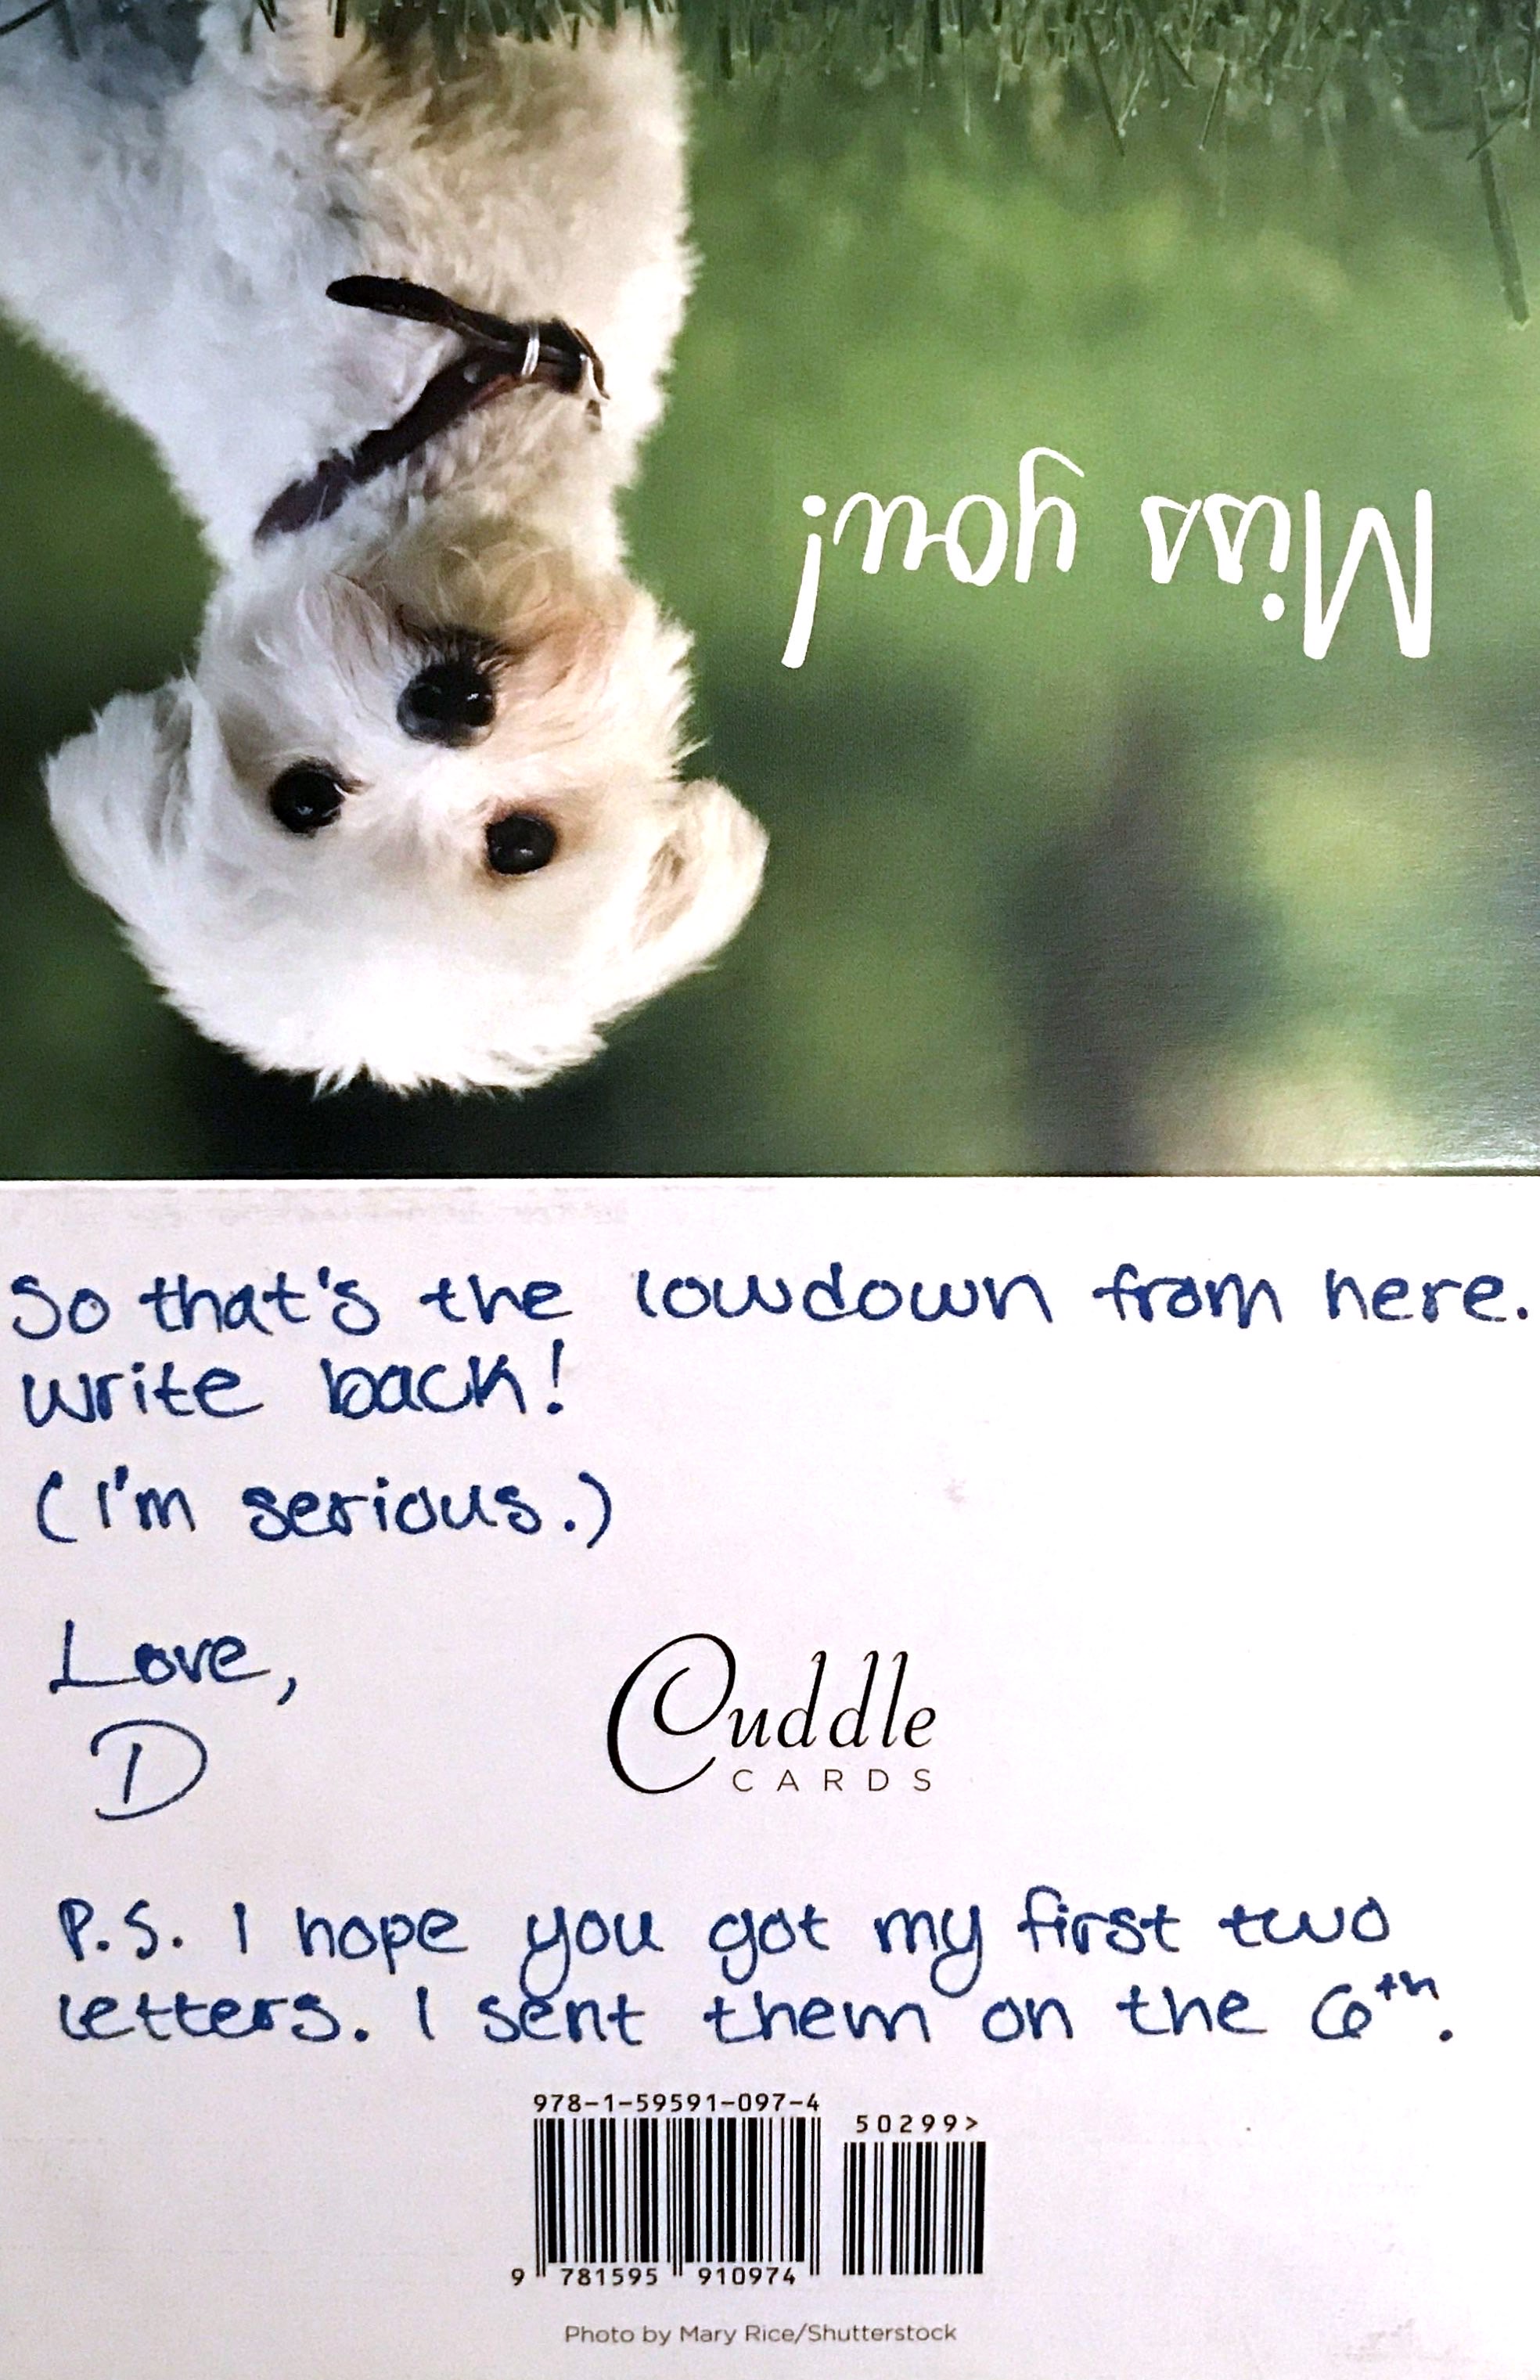 Miss you!
So that's the lowdown from here.
write back!
(I'm serious.)
Love,
D
Cuddle
CARDS
P.S. I hope you got my first two
letters. I sent them on the 6th.
978-1-59591-097-4
50299>
9 781595 910974
Photo by Mary Rice/Shutterstock